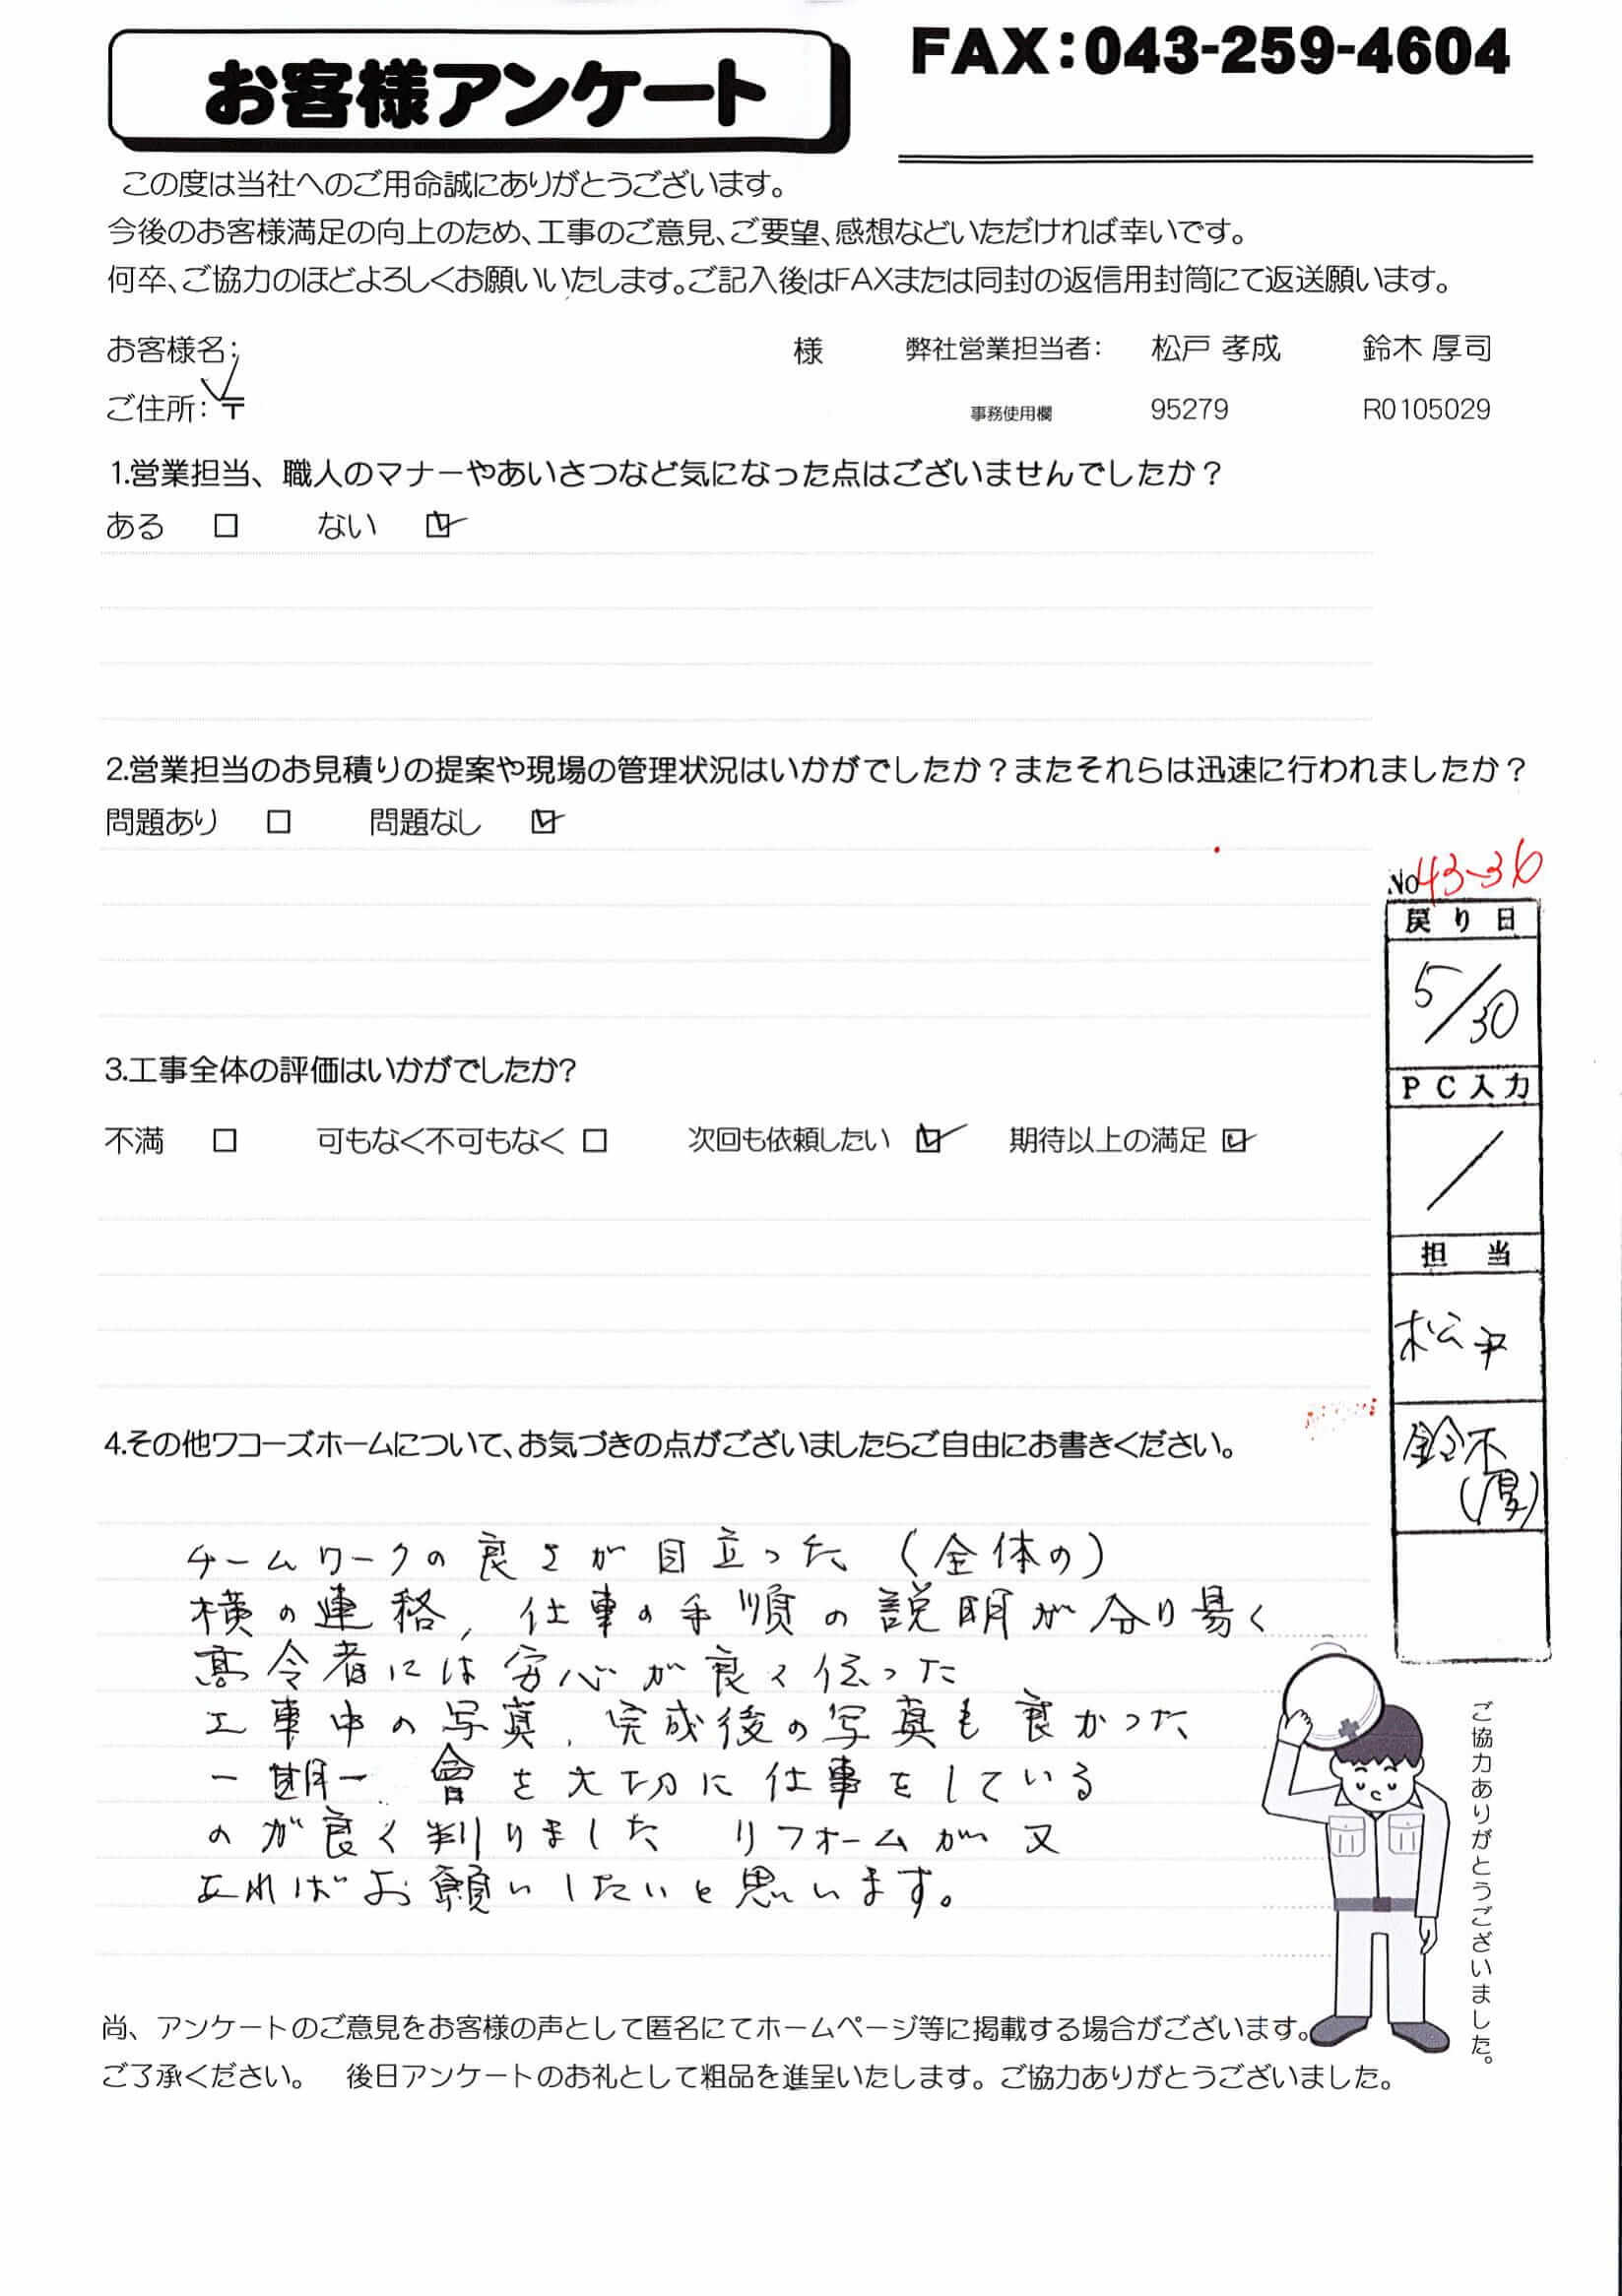 お客様アンケート
FAX:043-259-4604
この度は当社へのご用命誠にありがとうございます。
今後のお客様満足の向上のため、工事のご意見、ご要望、感想などいただければ幸いです。
何卒、ご協力のほどよろしくお願いいたします。ご記入後はFAXまたは同封の返信用封筒にて返送願います。
お客様名: 様 弊社営業担当者: 松戸 孝成 鈴木 厚司
ご住所:〒 事務使用欄 95279 R0105029
1.営業担当、職人のマナーやあいさつなど気になった点はございませんでしたか？
ある □ ない ☑
2.営業担当のお見積りの提案や現場の管理状況はいかがでしたか？またそれらは迅速に行われましたか？
問題あり □ 問題なし ☑
No43-36
戻り日
5/30
PC入力
/
担当
松戸
鈴木
(厚)
3.工事全体の評価はいかがでしたか?
不満 □ 可もなく不可もなく □ 次回も依頼したい ☑ 期待以上の満足 ☑
4.その他ワコーズホームについて、お気づきの点がございましたらご自由にお書きください。
チームワークの良さが目立った（全体の）
横の連絡, 仕事の手順の説明が分り易く
高令者には安心が良く伝った
工事中の写真, 完成後の写真も良かった
一期一會を大切に仕事をしている
のが良く判りました リフォームが又
あればお願いしたいと思います。
ご協力ありがとうございました。
尚、アンケートのご意見をお客様の声として匿名にてホームページ等に掲載する場合がございます。
ご了承ください。 後日アンケートのお礼として粗品を進呈いたします。ご協力ありがとうございました。